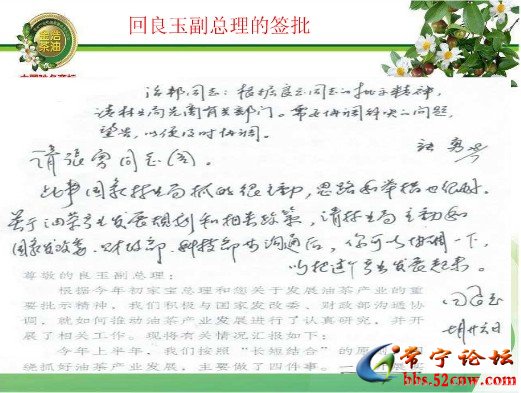 回良玉副总理的签批
金浩
茶油
治邦同志：根据良玉同志的批示精神，
请林业局先商有关部门。需要协调解决的问题，
望告，以便及时协调。
请张勇同志阅。
此事国家林业局抓的很主动，思路和举措也很好，
关于油茶产业发展规划和相关政策，请林业局主动与
国家发改委、财政部、科技部等沟通后，你可以协调一下，
以把这个产业发展起来。
回良玉
尊敬的良玉副总理：
根据今年初家宝总理和您关于发展油茶产业的重
要批示精神，我们积极与国家发改委、财政部沟通协
调，就如何推动油茶产业发展进行了认真研究，并开
展了相关工作。现将有关情况汇报如下：
今年上半年，我们按照“长短结合”的原则，
绕抓好油茶产业发展，主要做了四件事。一
常宁论坛
bbs.52cnw.com